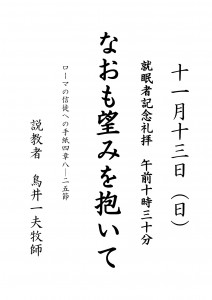 十一月十三日（日）
就眠者記念礼拝　午前十時三十分
なおも望みを抱いて
ローマの信徒への手紙四章八―二五節
説教者　鳥井一夫牧師